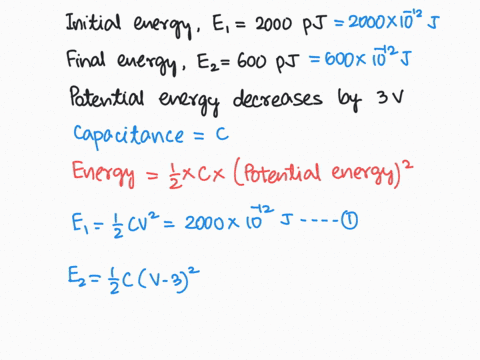 Initial energy, E₁ = 2000 pJ = 2000×10⁻¹² J
Final energy, E₂ = 600 pJ = 600×10⁻¹² J
Potential energy decreases by 3V
Capacitance = C
Energy = ½×C×(Potential energy)²
E₁ = ½ CV² = 2000×10⁻¹² J ---- ①
E₂ = ½ C (V-3)²